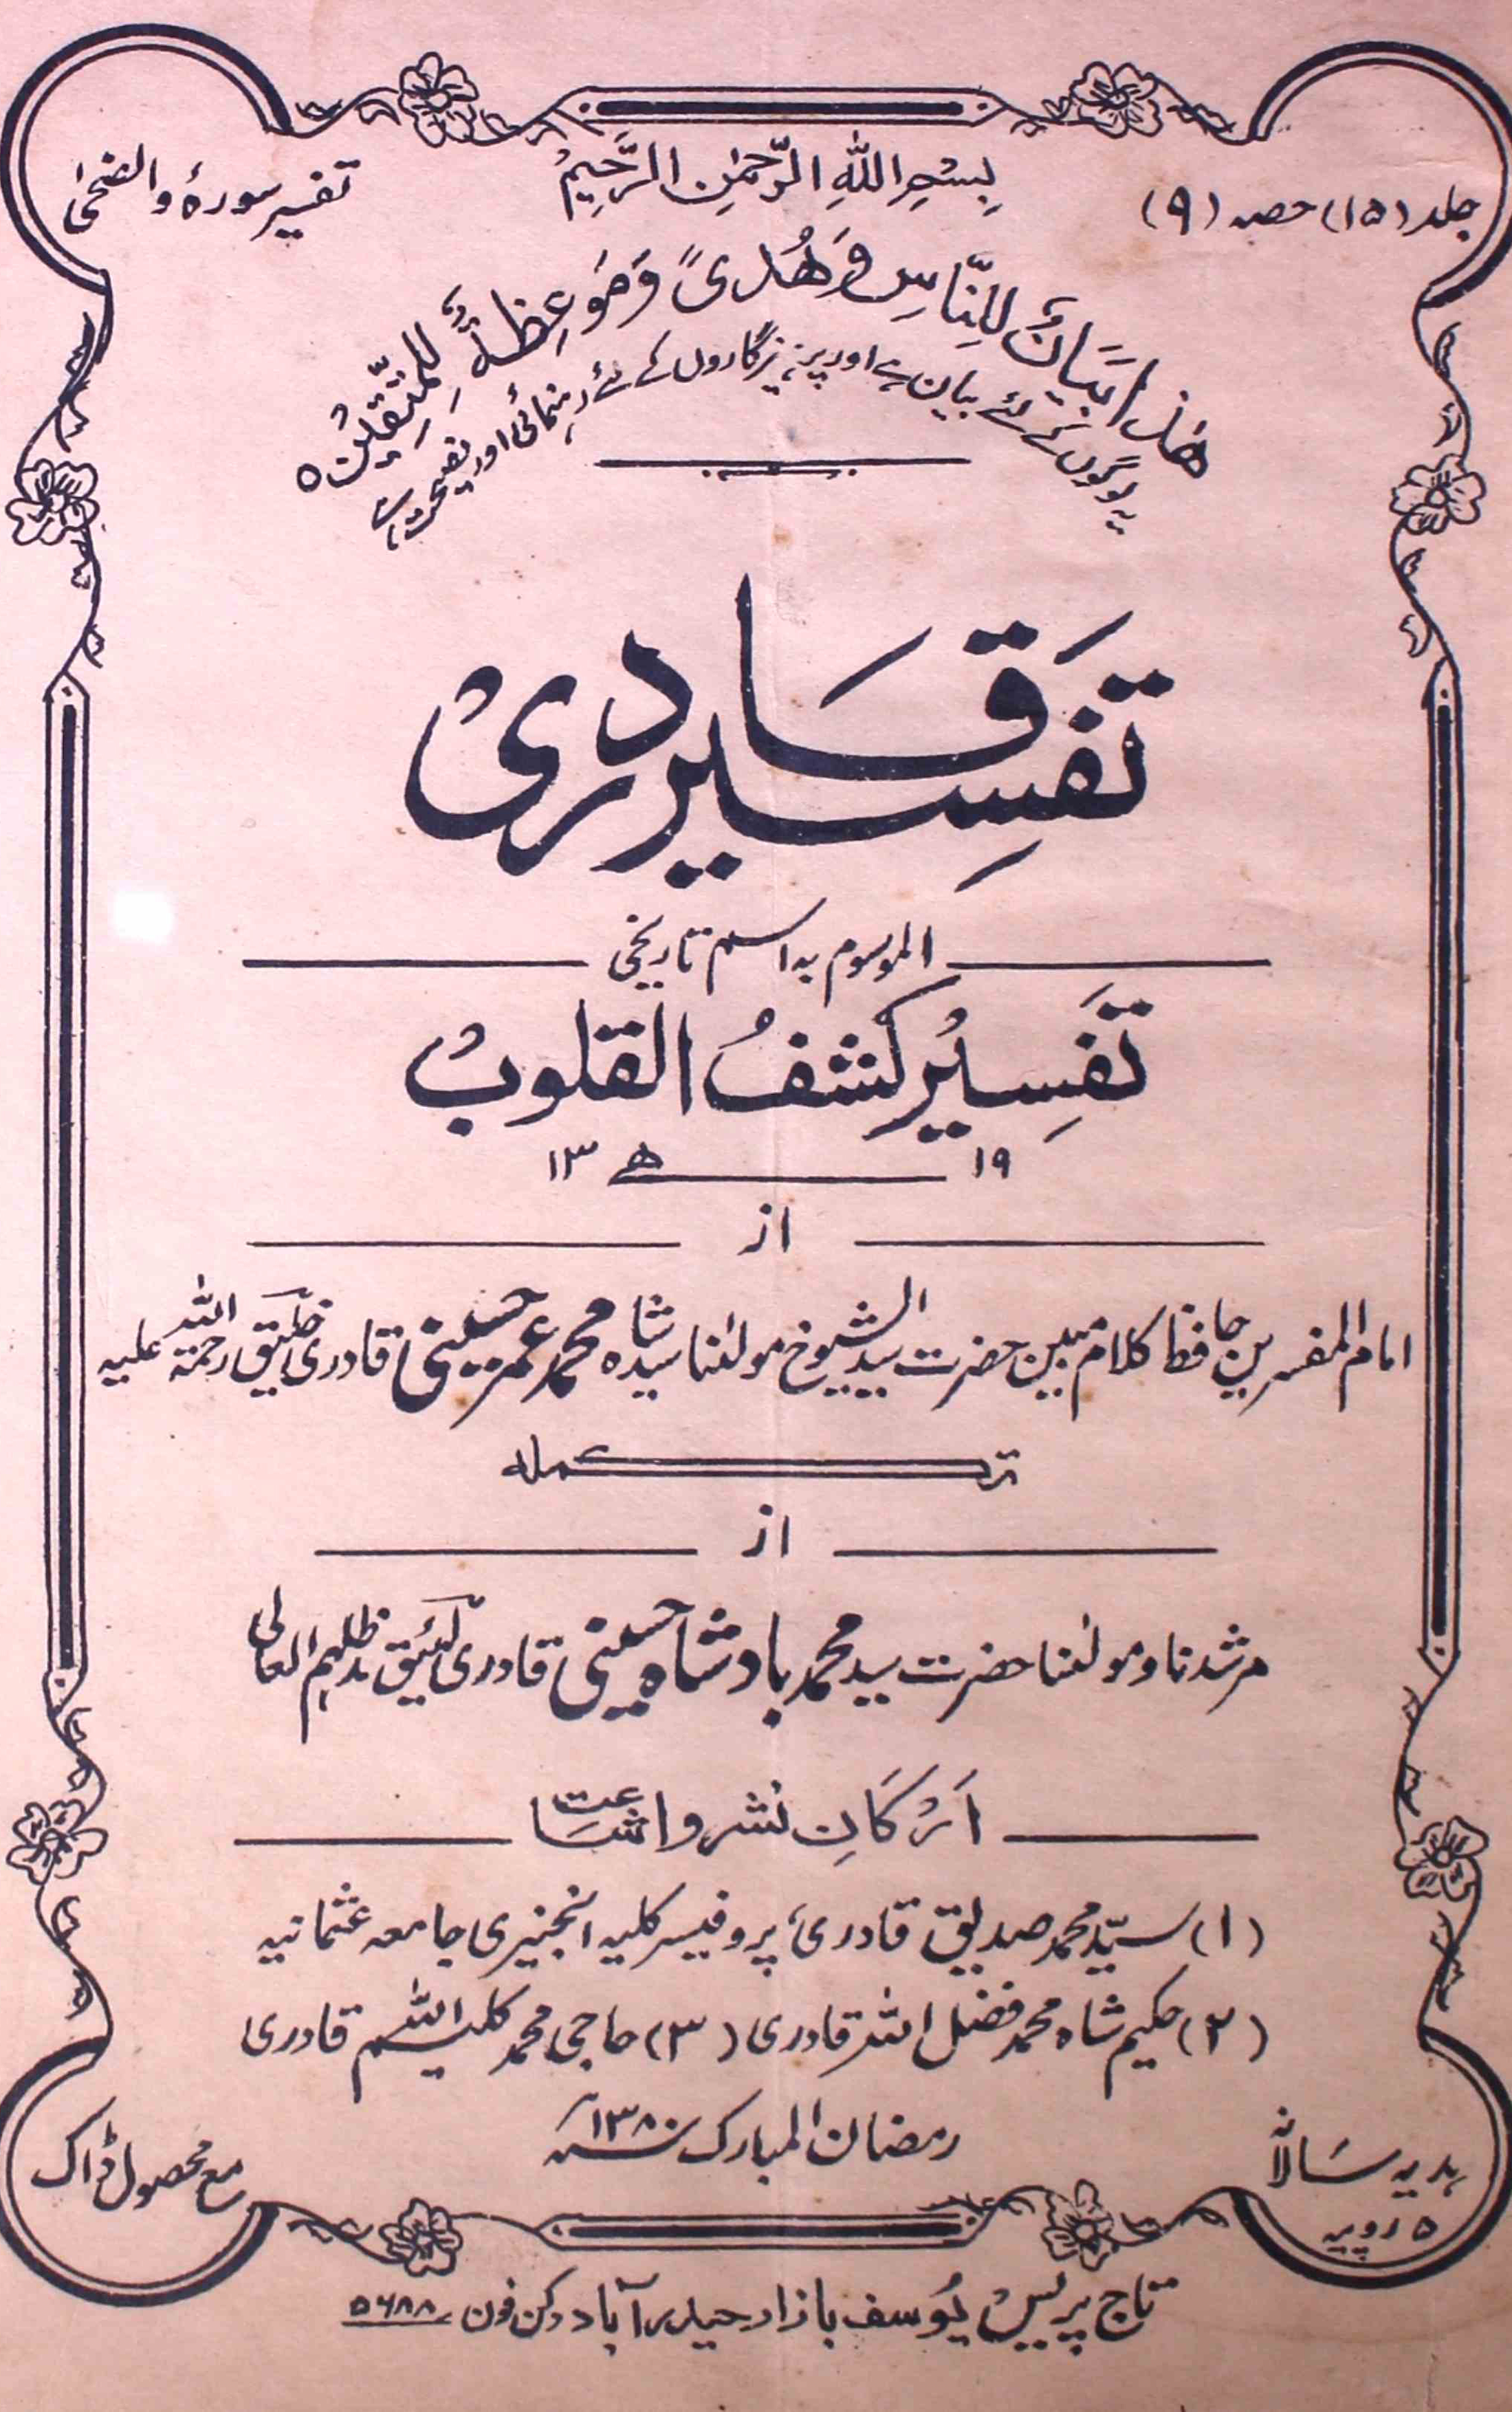 جلد (۱۵) حصہ (۹)
بِسْمِ اللّٰهِ الرَّحْمٰنِ الرَّحِيْمِ
تفسیر سورۂ والضحیٰ
هٰذَا بَيَانٌ لِّلنَّاسِ وَهُدًى وَّمَوْعِظَةٌ لِّلْمُتَّقِيْنَ ٥
یہ لوگوں کے لئے بیان ہے اور پرہیزگاروں کے لئے رہنمائی اور نصیحت ہے
تَفسِیر قَادری
الموسوم بہ اسم تاریخی
تَفسِیرُ کشفُ القلوب
۱۹ ھ ۱۳
از
امام المفسرین حافظ کلام مبین حضرت سید الشیوخ مولٰنا سید شاہ محمد عمر حسینی قادری خلیق رحمۃ اللہ علیہ
تکملہ
از
مرشدنا و مولٰنا حضرت سید محمد بادشاہ حسینی قادری لئیق مدظلہم العالی
اَرْکَانِ نشر و اشَاعت
(۱) سیّد محمد صدیق قادری پروفیسر کلیہ انجنیری جامعہ عثمانیہ
(۲) حکیم شاہ محمد فضل اللہ قادری (۳) حاجی محمد کلیم اللہ قادری
رمضان المبارک ۱۳۸۰ھ
ہدیہ سَالانہ
۵ روپیہ
مع محصول ڈاک
تاج پریس یُوسف بازار حیدرآباد دکن فون ۵۶۸۸